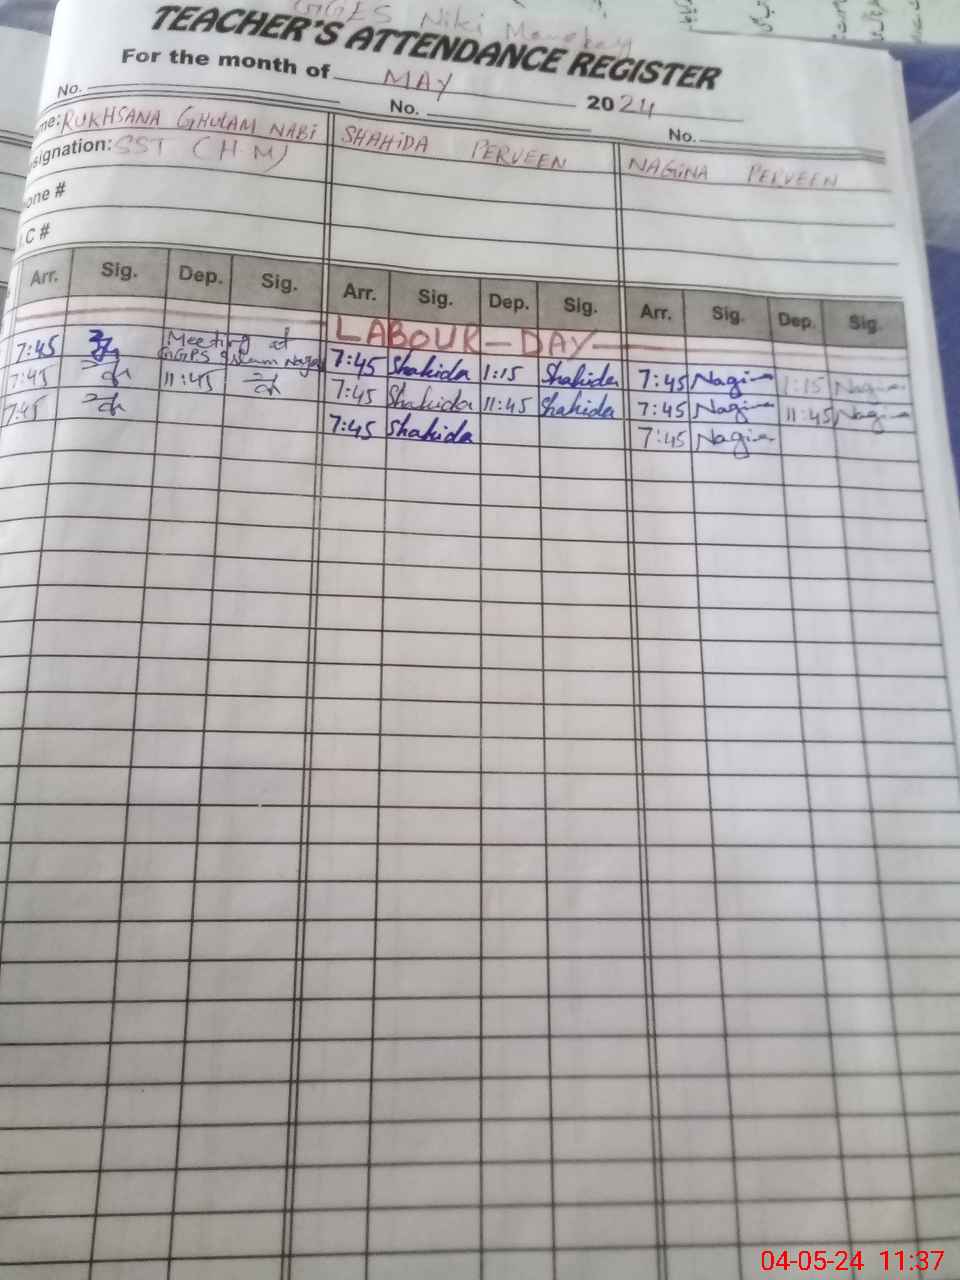 GGES Niki
TEACHER'S ATTENDANCE REGISTER
For the month of MAY 2024
No. No. No.
me: RUKHSANA GHULAM NABI SHAHIDA PERVEEN NAGINA PERVEEN
signation: SST (H.M)
one #
.C #
Arr. Sig. Dep. Sig. Arr. Sig. Dep. Sig. Arr. Sig. Dep. Sig.
LABOUR - DAY
7:45 Meeting at GGPS 7:45 Shahida 1:15 Shahida 7:45 Nagina 1:15 Nagina
7:45 11:45 7:45 Shahida 11:45 Shahida 7:45 Nagina 11:45 Nagina
7:45 7:45 Shahida 7:45 Nagina
04-05-24 11:37